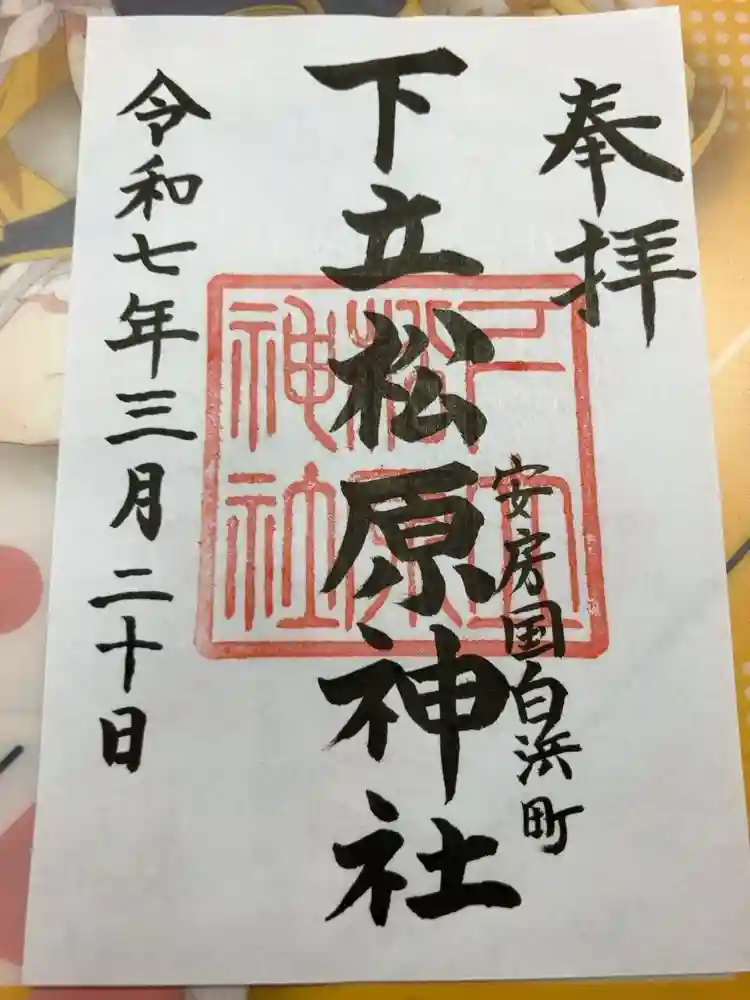 奉拝
安房国白浜町
下立松原神社
下立
松原
神社
令和七年三月二十日